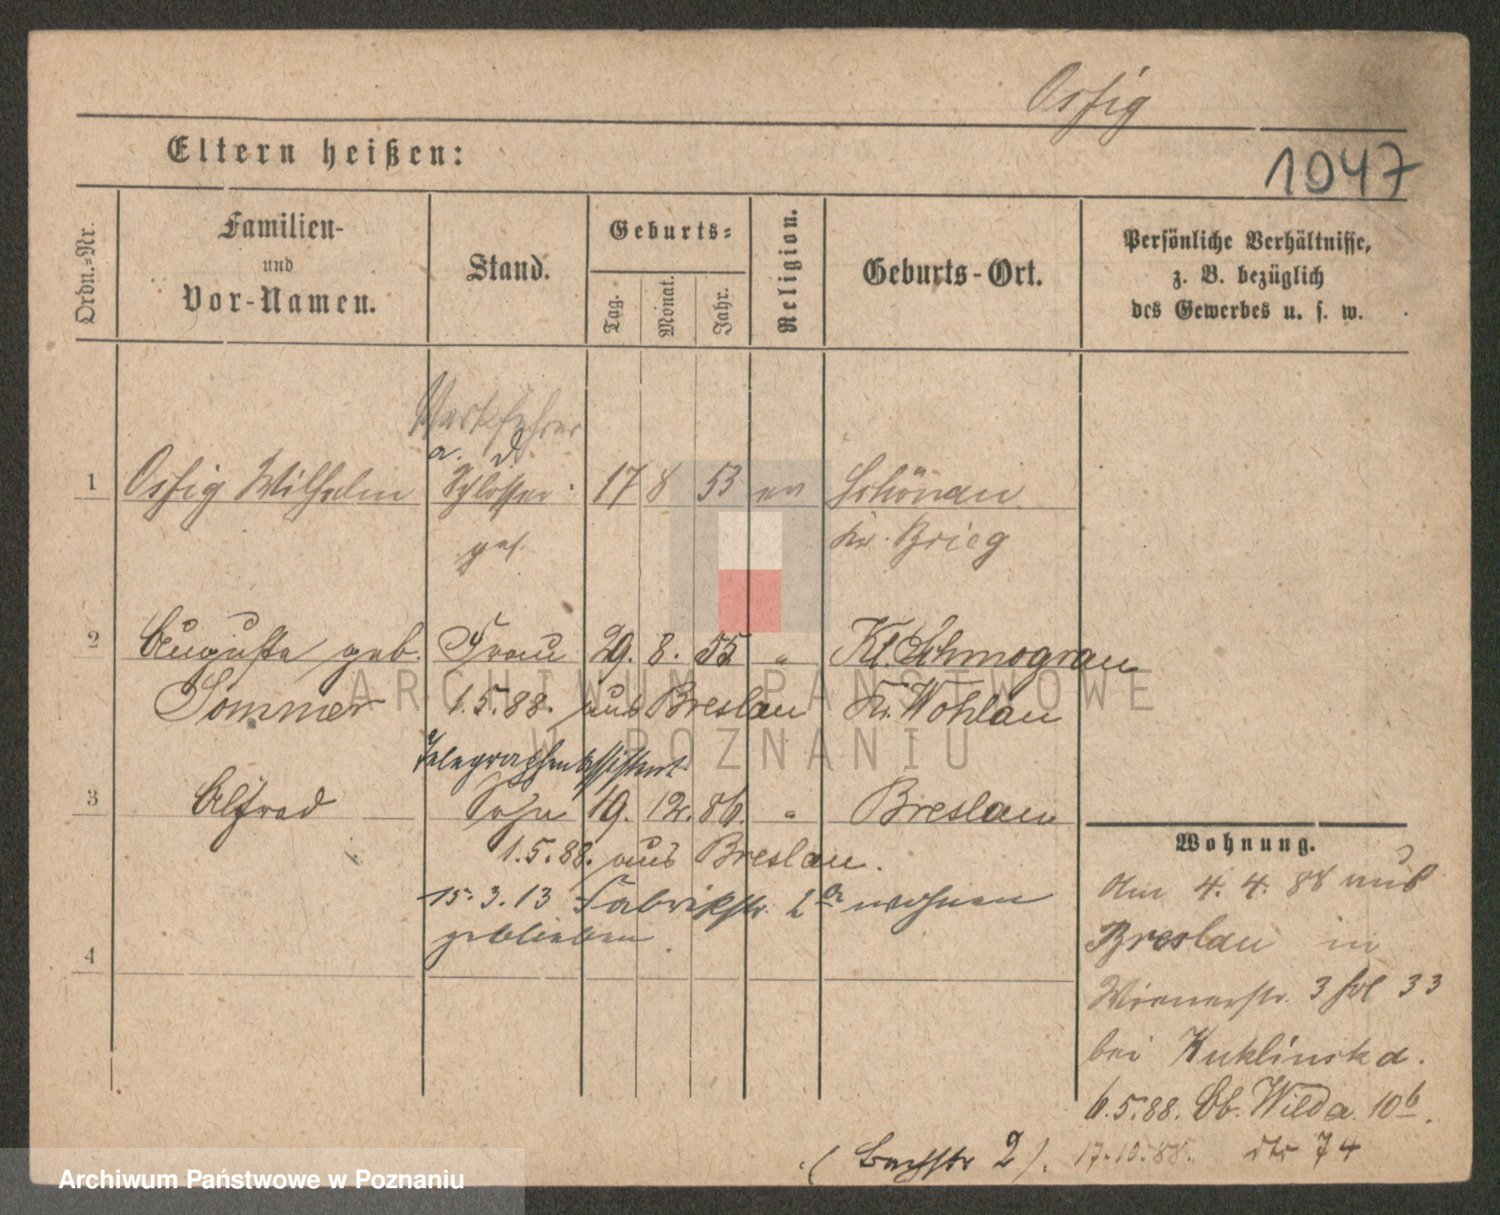 Ossig
1047
Eltern heißen:
Ordn.-Nr.
Familien-
und
Vor-Namen.
Stand.
Geburts-
Tag.
Monat.
Jahr.
Religion.
Geburts-Ort.
Persönliche Verhältnisse,
z. B. bezüglich
des Gewerbes u. s. w.
Werkführer
a. D.
1 Ossig Wilhelm Schlosser 17 8 53 ev Schönau
ges. Kr. Brieg
2 Auguste geb. Frau 29. 8. 55 " Kl. Schmograu
Sommer 1.5.88. aus Breslau Kr. Wohlau
Telegraphenassistent
3 Alfred Sohn 19. 12. 86. " Breslau
1.5.88. aus Breslau.
15.3.13 Fabrikstr. 2a wohnen
geblieben.
4
Wohnung.
Am 4. 4. 88 aus
Breslau in
Wienerstr. 3 33
bei Kuklinska.
6.5.88. Ob. Wilda 10b.
17.10.88. dto 74
(Bachstr 2).
ARCHIWUM PAŃSTWOWE
W POZNANIU
Archiwum Państwowe w Poznaniu